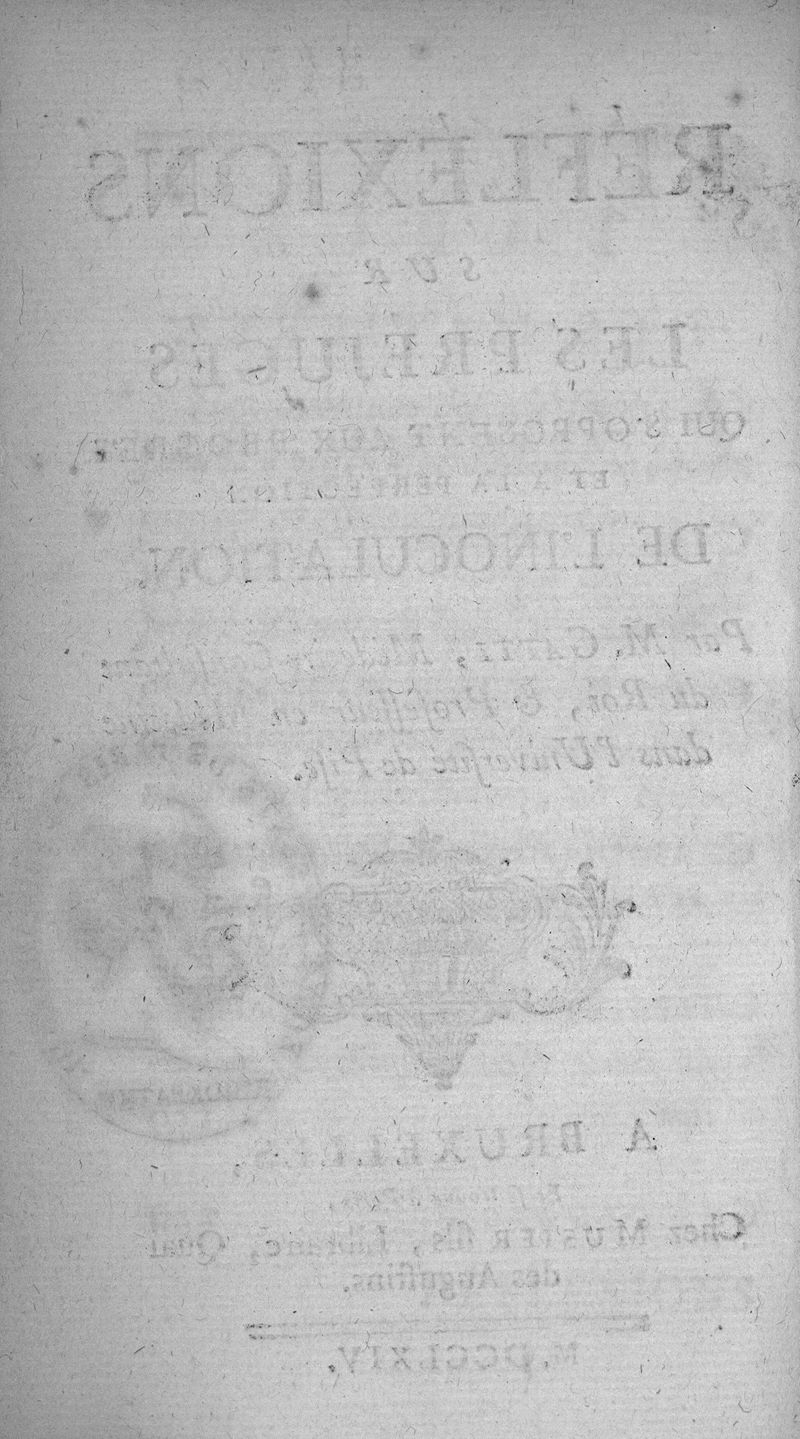 RÉFLEXIONS
SUR
LES PRÉJUGÉS
QUI S'OPPOSENT AUX PROGRÈS
ET A LA PERFECTION
DE L'INOCULATION.
Par M. GATTI, Médecin Consultant
du Roi, & Professeur en Médecine
dans l'Université de Pise.
A BRUXELLES,
Et se trouve à Paris,
Chez MUSIER fils, Libraire, Quai
des Augustins.
M. DCC LXIV.